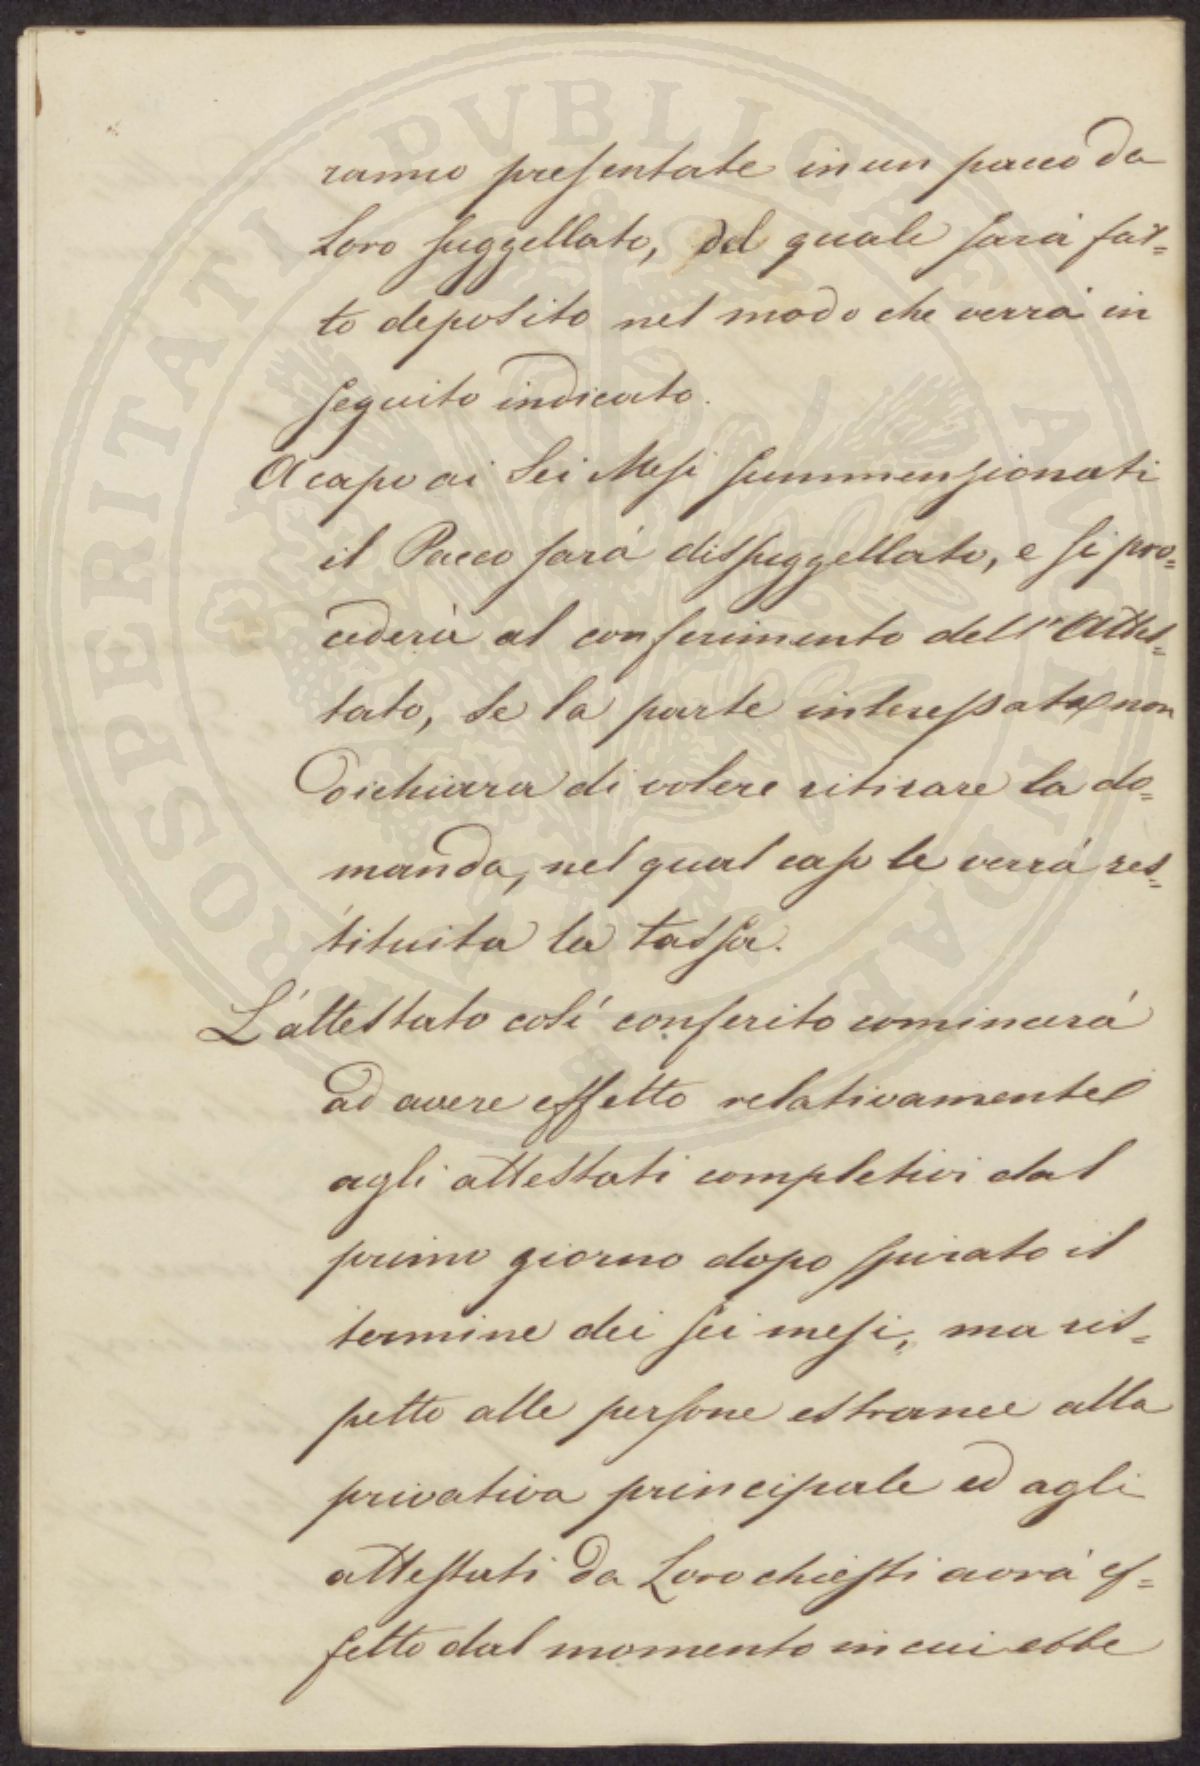 ranno presentate in un pacco da
Loro suggellato, del quale sarà fat=
to deposito nel modo che verrà in
seguito indicato.
A capo ai Sei Mesi summensionati
il Pacco sarà dissuggellato, e si pro=
cederà al conferimento dell'Attes=
tato, se la parte interessata non
Dichiara di volere ritirare la do=
manda, nel qual caso le verrà res=
tituita la tassa.
L'attestato così conferito comincerà
ad avere effetto relativamente
agli attestati completivi dal
primo giorno dopo spirato il
termine dei sei mesi, ma ris=
petto alle persone estranee alla
privativa principale ed agli
attestati da Loro chiesti avrà ef=
fetto dal momento in cui ebbe
PROSPERITATI PVBLICAE AVGENDAE